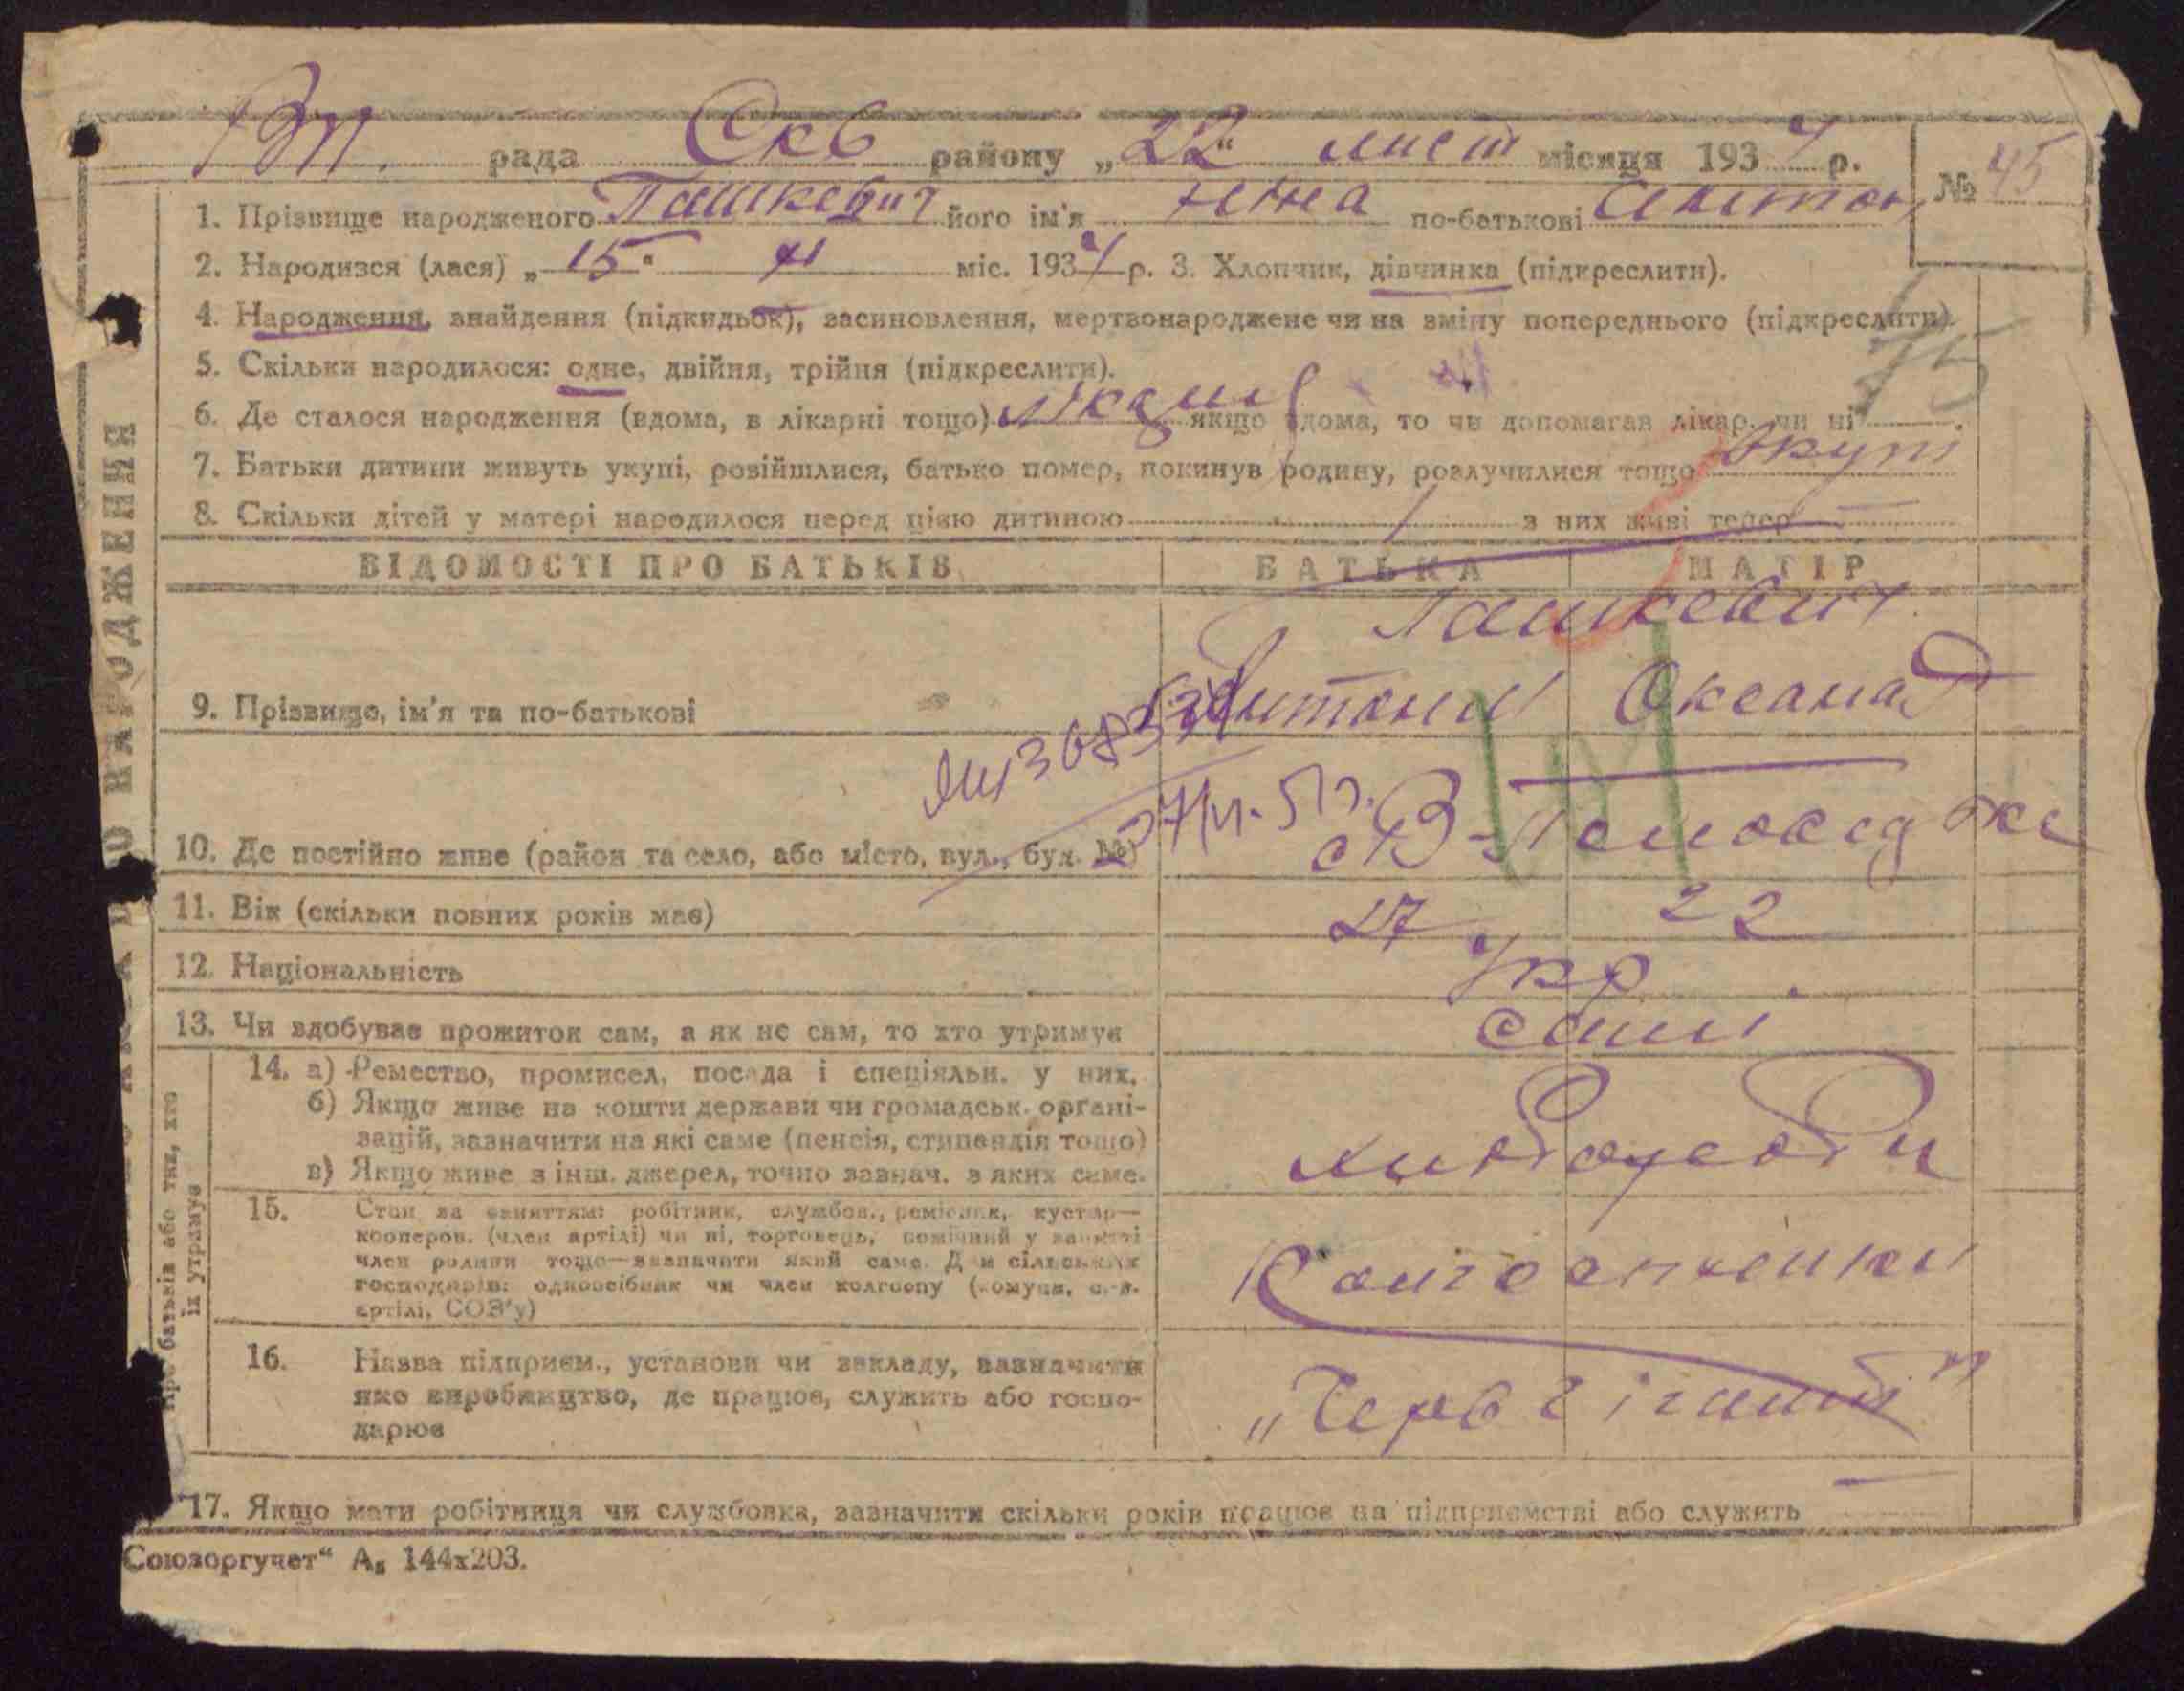 ВП. рада Скв району „22" лист місяця 1934 р.
№ 45
1. Прізвище народженого Пашкевич його ім'я Ніна по-батькові Антон
2. Народився (лася) „15" XI міс. 1934 р. 3. Хлопчик, дівчинка (підкреслити).
4. Народження, знайдення (підкидьок), засиновлення, мертвонароджене чи на зміну попереднього (підкреслити).
75
5. Скільки народилося: одне, двійня, трійня (підкреслити).
6. Де сталося народження (вдома, в лікарні тощо) якщо вдома, то чи допомагав лікар, чи ні
7. Батьки дитини живуть укупі, розійшлися, батько помер, покинув родину, розлучилися тощо вкупі
8. Скільки дітей у матері народилося перед цією дитиною 1 з них живі тепер —
ВІДОМОСТІ ПРО БАТЬКІВ БАТЬКА МАТІР
Пашкевич
9. Прізвище, ім'я та по-батькові Антон Оксана
10. Де постійно живе (район та село, або місто, вул., буд. №)
11. Вік (скільки повних років має) 27 22
12. Національність Укр
13. Чи здобуває прожиток сам, а як не сам, то хто утримує сами
14. а) Ремество, промисел, посада і спеціяльн. у них.
б) Якщо живе на кошти держави чи громадськ. органі-
зацій, зазначити на які саме (пенсія, стипендія тощо)
в) Якщо живе з інш. джерел, точно зазнач. з яких саме.
хлібороби
15. Стан за заняттям: робітник, службов., ремісник, кустар—
кооперов. (член артілі) чи ні, торговець, помічний у занятті
член родини тощо—зазначити який саме. Для сільських
господарів: одноосібник чи член колгоспу (комуни, с.-г.
артілі, СОЗ'у)
Колгоспники
16. Назва підприєм., установи чи закладу, зазначити
яке виробництво, де працює, служить або госпо-
дарює
„Черв гігант"
17. Якщо мати робітниця чи службовка, зазначити скільки років працює на підприємстві або служить —
Союзоргучет" А₅ 144х203.
О НАРОДЖЕННЯ
батьків або тих, хто
їх утримує